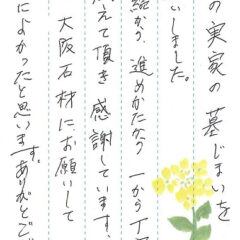 の実家の墓じまいを
いしました。
続から、進めかたなり、一から丁
えて頂き感謝しています。
大阪石材にお願いして
によかったと思います。ありがとうご